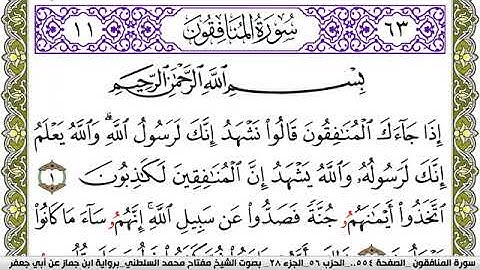 ٦٣ سُورَةُ المُنَافِقُونَ ١١
بِسْمِ اللَّهِ الرَّحْمَٰنِ الرَّحِيمِ
إِذَا جَآءَكَ ٱلْمُنَٰفِقُونَ قَالُوا۟ نَشْهَدُ إِنَّكَ لَرَسُولُ ٱللَّهِۗ وَٱللَّهُ يَعْلَمُ
إِنَّكَ لَرَسُولُهُۥ وَٱللَّهُ يَشْهَدُ إِنَّ ٱلْمُنَٰفِقِينَ لَكَٰذِبُونَ ١
ٱتَّخَذُوٓا۟ أَيْمَٰنَهُمُۥ جُنَّةً فَصَدُّوا۟ عَن سَبِيلِ ٱللَّهِۚ إِنَّهُمُۥ سَآءَ مَا كَانُوا۟
سورة المنافقون_ الصفحة ٥٥٤_ الحزب ٥٦_الجزء ٢٨_ بصوت الشيخ مفتاح محمد السلطني_برواية ابن جماز عن أبي جعفر